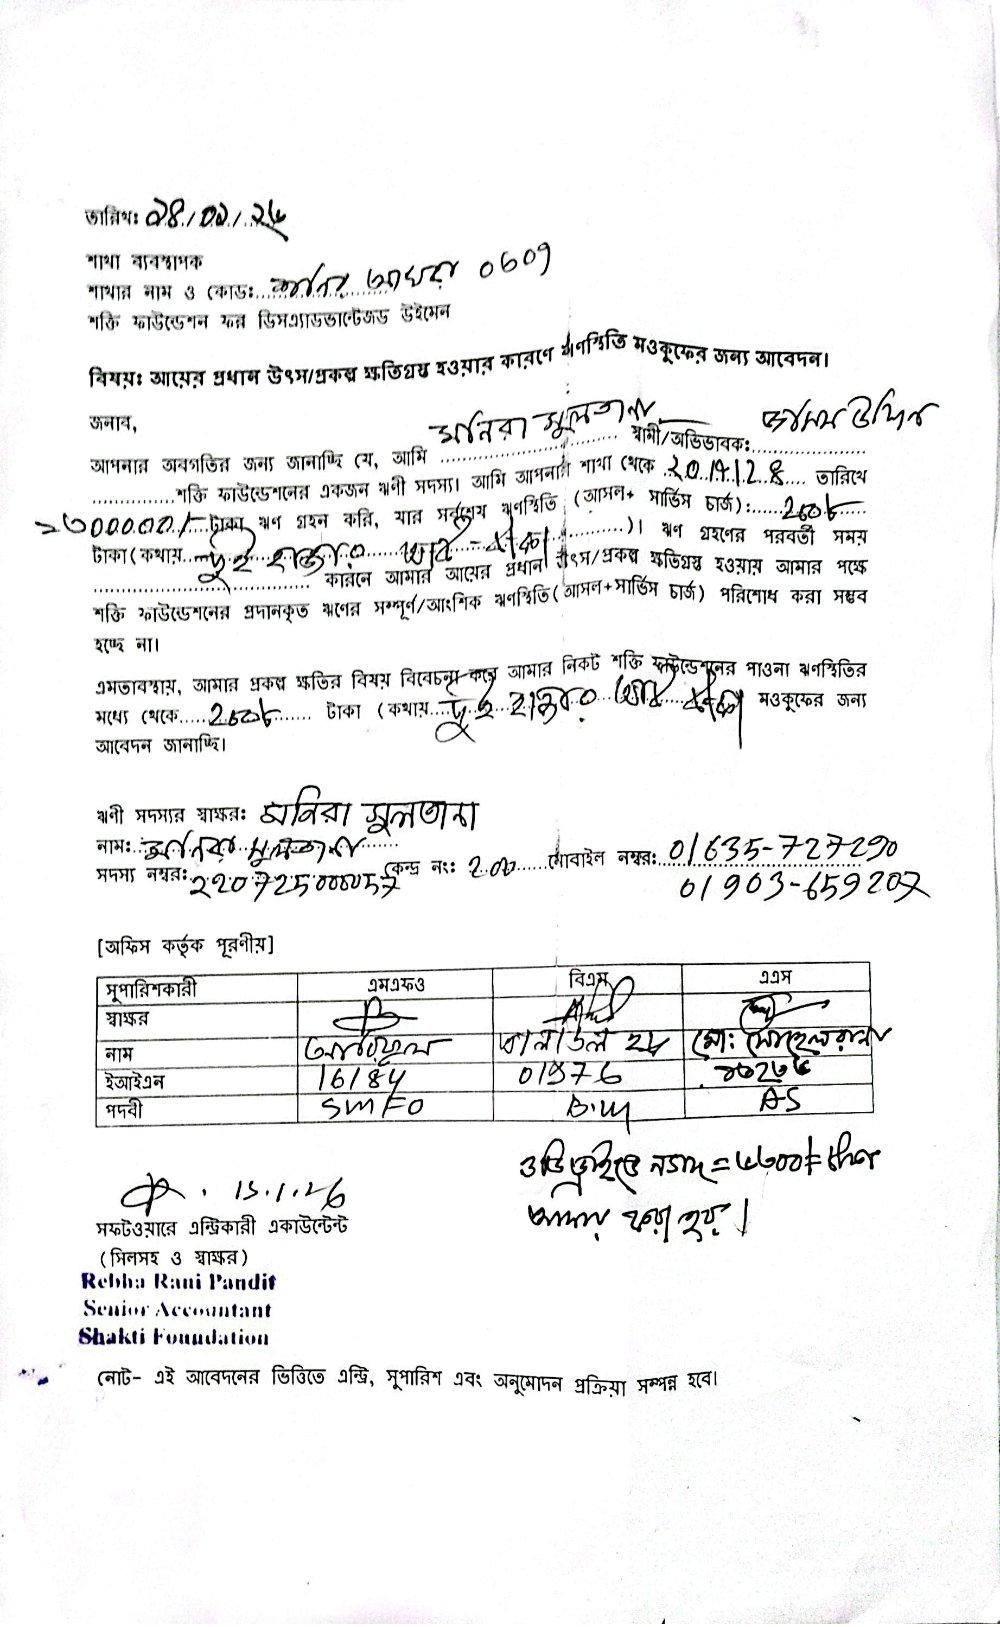 তারিখঃ ১৪/০১/২৬
শাখা ব্যবস্থাপক
শাখার নাম ও কোডঃ 0607
শক্তি ফাউন্ডেশন ফর ডিসএ্যাডভান্টেজড উইমেন
বিষয়ঃ আয়ের প্রধান উৎস/প্রকল্প ক্ষতিগ্রস্ত হওয়ার কারণে ঋণস্থিতি মওকুফের জন্য আবেদন।
জনাব,
আপনার অবগতির জন্য জানাচ্ছি যে, আমি মনিরা সুলতানা স্বামী/অভিভাবকঃ জসিম উদ্দিন
শক্তি ফাউন্ডেশনের একজন ঋণী সদস্য। আমি আপনার শাখা থেকে তারিখে
টাকা ঋণ গ্রহন করি, যার সর্বশেষ ঋণস্থিতি (আসল+ সার্ভিস চার্জ):
টাকা(কথায় দুই হাজার আট টাকা)। ঋণ গ্রহণের পরবর্তী সময়
কারনে আমার আয়ের প্রধান উৎস/প্রকল্প ক্ষতিগ্রস্ত হওয়ায় আমার পক্ষে
শক্তি ফাউন্ডেশনের প্রদানকৃত ঋণের সম্পূর্ণ/আংশিক ঋণস্থিতি(আসল+সার্ভিস চার্জ) পরিশোধ করা সম্ভব
হচ্ছে না।
এমতাবস্থায়, আমার প্রকল্প ক্ষতির বিষয় বিবেচনা করে আমার নিকট শক্তি ফাউন্ডেশনের পাওনা ঋণস্থিতির
মধ্যে থেকে টাকা (কথায় দুই হাজার আট টাকা মওকুফের জন্য
আবেদন জানাচ্ছি।
ঋণী সদস্যর স্বাক্ষরঃ মনিরা সুলতানা
নাম: মনিরা সুলতানা
সদস্য নম্বরঃ কেন্দ্র নংঃ মোবাইল নম্বরঃ 01635-727290
01903-659207
[অফিস কর্তৃক পূরণীয়]
সুপারিশকারী এমএফও বিএম এএস
স্বাক্ষর
নাম আরিফুল মোঃ সোহেল রানা
ইআইএন 16184 01976
পদবী SMFO B.M AS
আদায় করা হয়।
15.1.26
সফটওয়ারে এন্ট্রিকারী একাউন্টেন্ট
(সিলসহ ও স্বাক্ষর)
Rebha Rani Pandit
Senior Accountant
Shakti Foundation
নোট- এই আবেদনের ভিত্তিতে এন্ট্রি, সুপারিশ এবং অনুমোদন প্রক্রিয়া সম্পন্ন হবে।